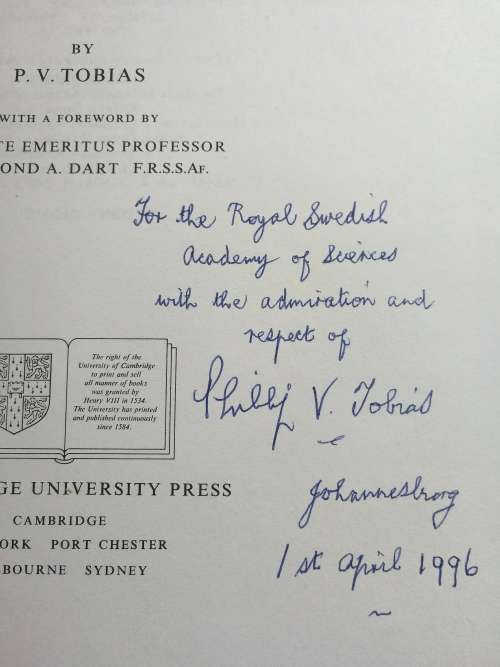 BY
P. V. TOBIAS
WITH A FOREWORD BY
TE EMERITUS PROFESSOR
OND A. DART F.R.S.S.AF.
For the Royal Swedish
Academy of Sciences
with the admiration and
respect of
Phillip V. Tobias
The right of the
University of Cambridge
to print and sell
all manner of books
was granted by
Henry VIII in 1534.
The University has printed
and published continuously
since 1584.
GE UNIVERSITY PRESS
CAMBRIDGE
ORK PORT CHESTER
BOURNE SYDNEY
Johannesburg
1st April 1996